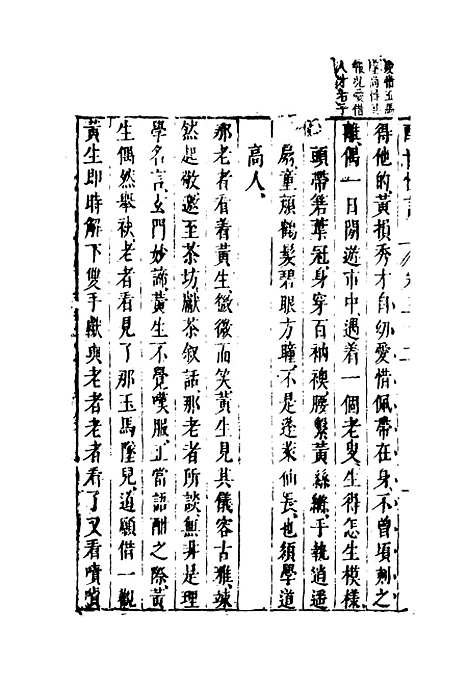 得他的黃損秀才自幼愛惜佩帶在身不曾頃刻之
離偶一日閒遊市中遇着一個老叟生得怎生模樣
頭帶箬葉冠身穿百衲襖腰繫黃絲縧手執逍遥
扇童顏鶴髮碧眼方瞳不是蓬萊仙長也須學道
高人
那老者看着黃生微微而笑黃生見其儀容古雅竦
然起敬邀至茶坊獻茶叙話那老者所談無非是理
學名言玄門妙諦黃生不覺嘆服正當語酣之際黃
生偶然舉袂老者看見了那玉馬墜兒道願借一觀
黃生即時解下雙手獻與老者老者看了又看嘖嘖